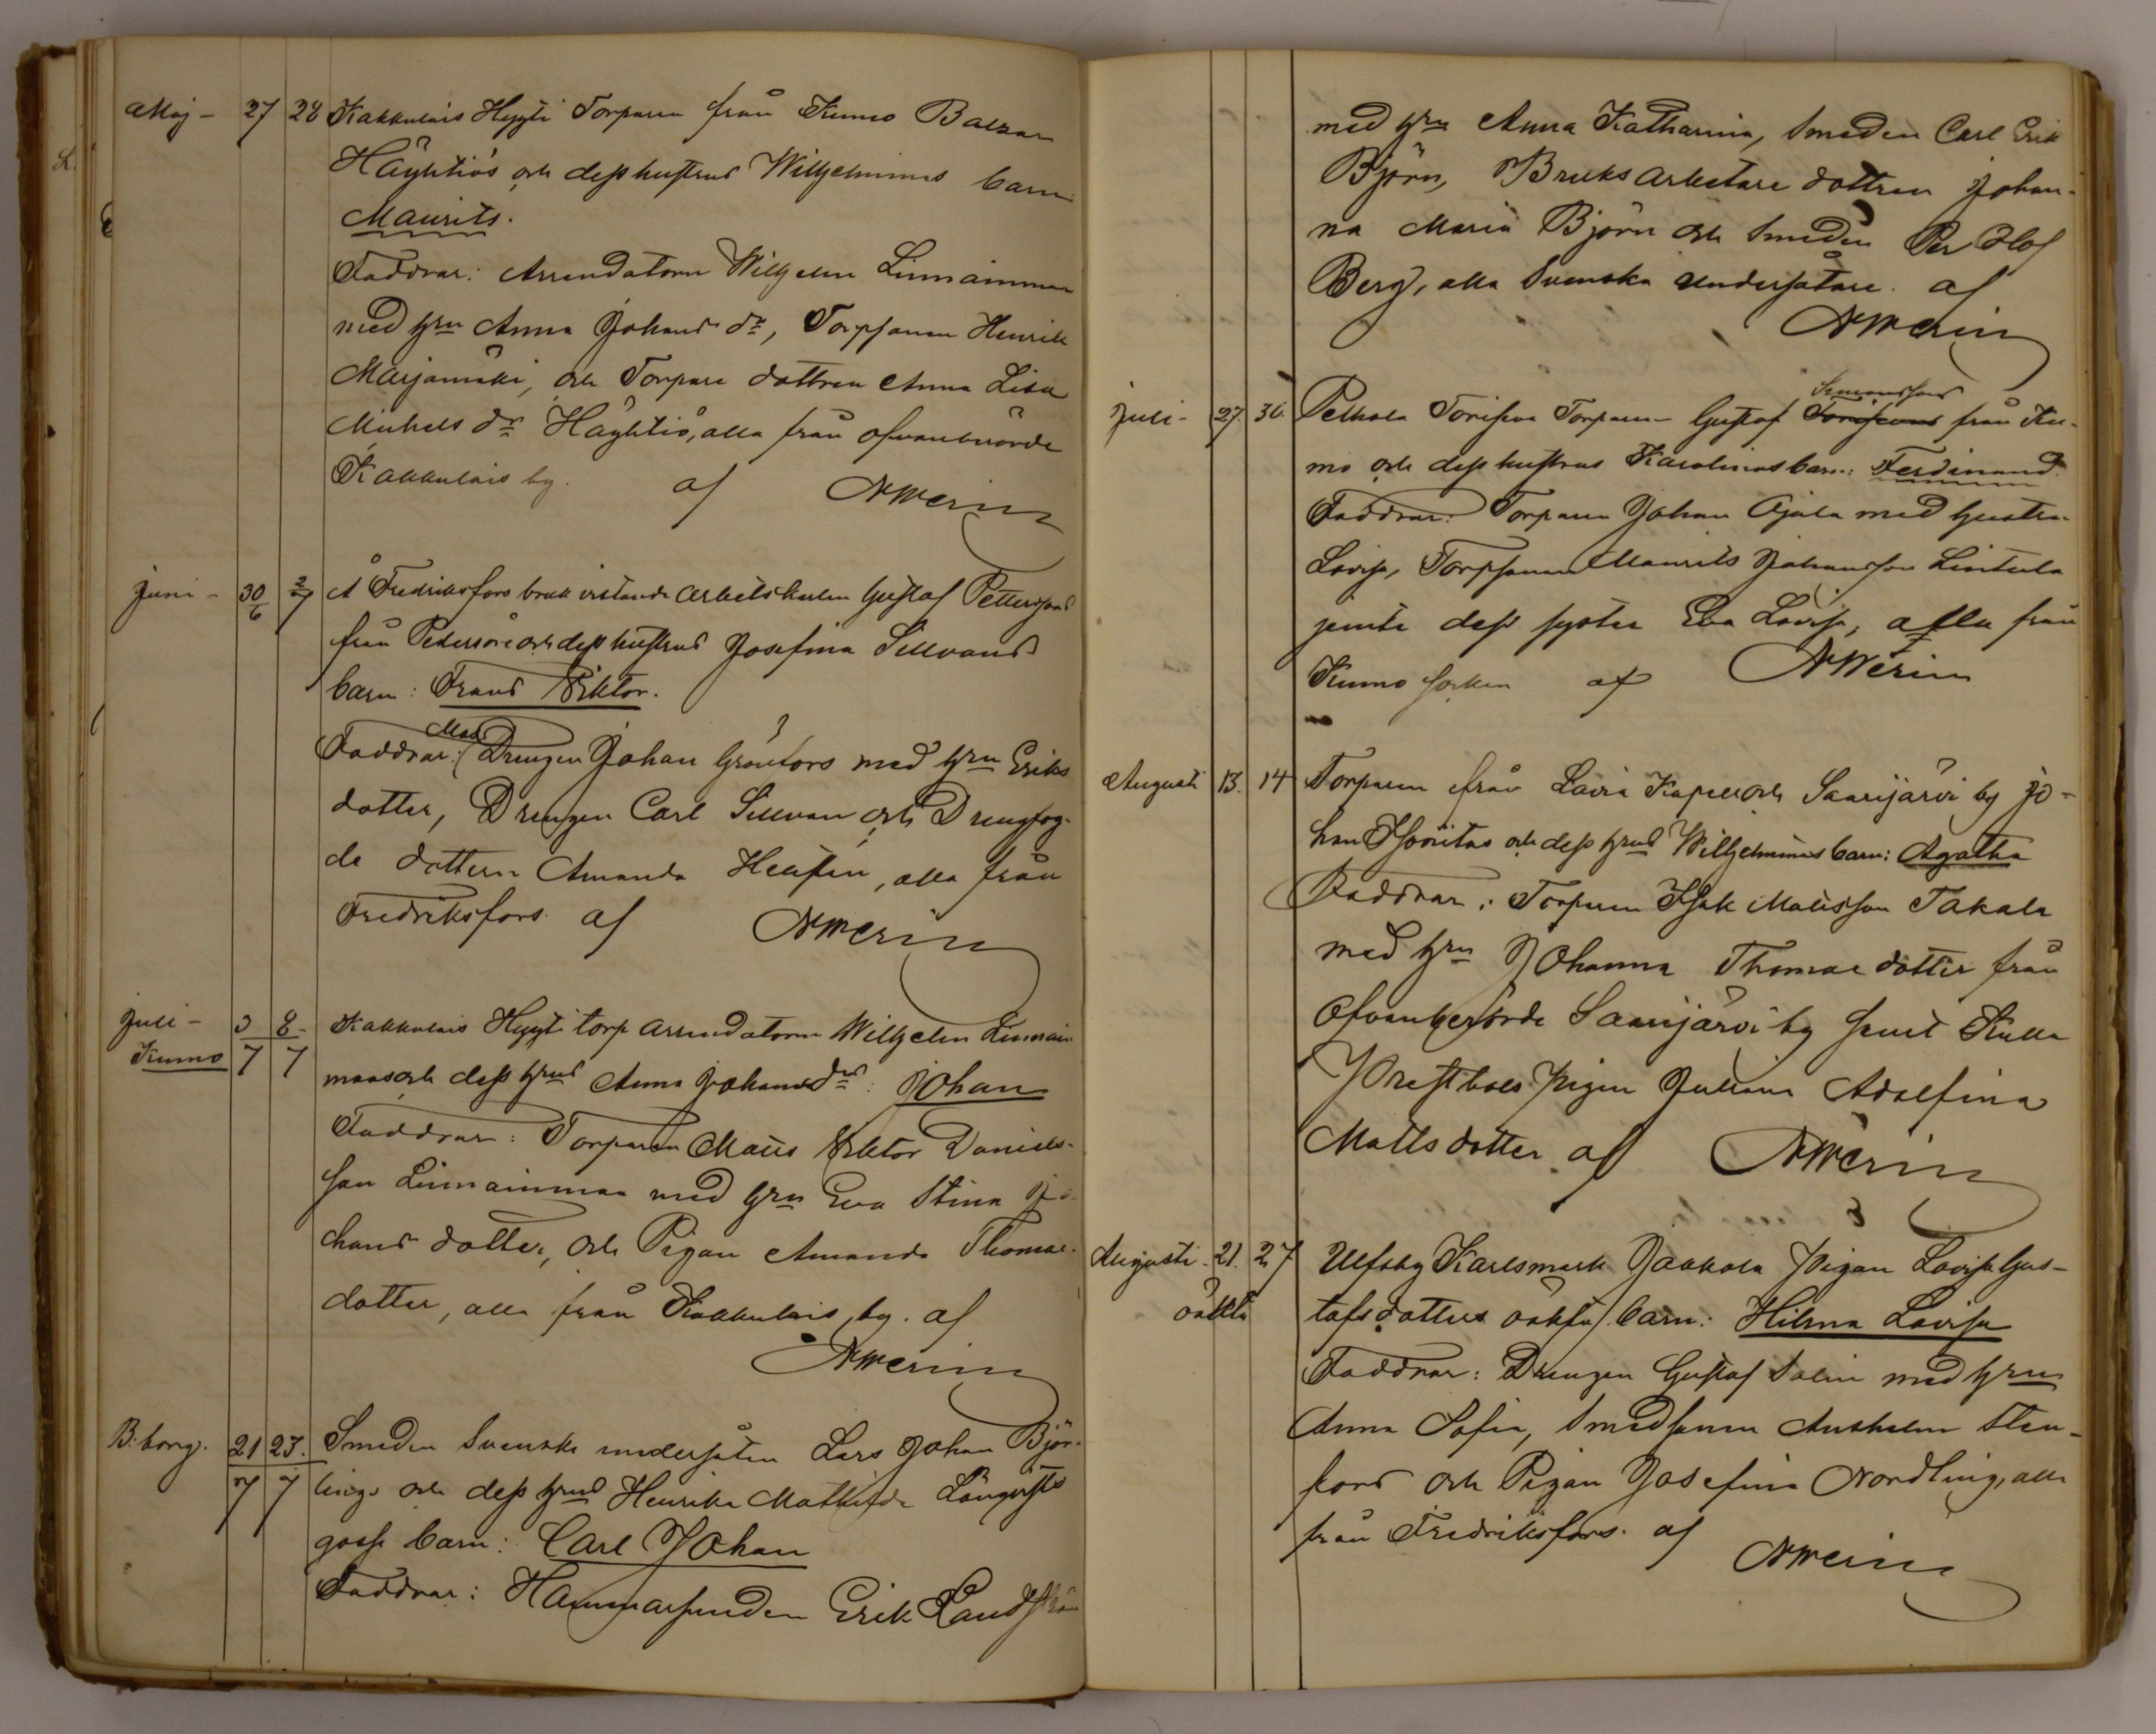 Maj - 27 28 Kakkulais Hyyti Torparen från Kumo Balzar
Häyhtiös och dess hustrus Wilhelminas barn
Maurits.
Faddrar: Arrendatorn Wilhelm Linnainmaa
med hru Anna Johans dr, Torpsonen Henrik
Marjamäki, och Torpare dottren Anna Lisa
Michels dr Häyhtiö, alla från ofvanberörde
Kakkulais by. af NMerin
Juni - 30/6 2/7 Å Fredriksfors bruk vistande Arbetskarlen Gustaf Petterssons
från Pedersöre och dess hustrus Josefina Sillvans
barn: Frans Viktor.
Faddrar: Drengen Johan Grönfors med hru Eriks
dotter, Drengen Carl Sillvan och Drengfog-
de dottern Amanda, alla från
Fredriksfors. af NMerin
Juli - 3/7 8/7 Kakkulais Hyyti torp arrendatorn Wilhelm Linnain
Kumo
maas och dess hrus Anna Johans drs: Johan
Faddrar: Torparen Matts Viktor Daniels-
son Linnainmaa med hru Eva Stina Jo-
hans dotter, och Pigan Amanda Thomas-
dotter, alla från Kakkulais by. af
NMerin
B:borg. 21/7 23/7 Smeden Svenske undersåten Lars Johan Björ-
lings och dess hrus Henrika Mathilda Långqvists
gosse barn: Carl Johan
Faddrar: Hammarsmeden Erik Landström
med hru Anna Katharina, Smeden Carl Erik
Björn, Bruksarbetare dottren Johan-
na Maria Björn och Smeden Per Olof
Berg, alla Svenska undersåtare. af
NMerin
Simonssons
Juli - 27. 30. Gustaf från Ku-
mo och dess hustrus Karolinas barn: Ferdinand.
Faddrar: Torparen Johan Ojala med hustru
Lovisa, Torpsonen Maurits Johansson Lintula
jemte dess syster Eva Lovisa, alla från
Kumo socken af NMerin
Augusti 13. 14 Torparen från Lavia Kapell och Saarijärvi by Jo-
han och dess hrus Wilhelminas barn: Agatha
Faddrar: Torparen Isak Mattsson Takala
med hru Johanna Thomas dotter från
Ofvanberörde Saarijärvi by samt Kulla
Prestbols Pigan Juliana Adolfina
Matts dotter. af NMerin
Augusti. 21. 27 Ulfsby Karlsmark Jaakola Pigan Lovisa Gus-
oäkta tafsdotters oäkta barn: Hilma Lovisa
Faddrar: Drengen Gustaf Salin med hru
Anna Sofia, Smedsonen Anshelm Sten-
fors och Pigan Josefina Nordling, alla
från Fredriksfors. af NMerin